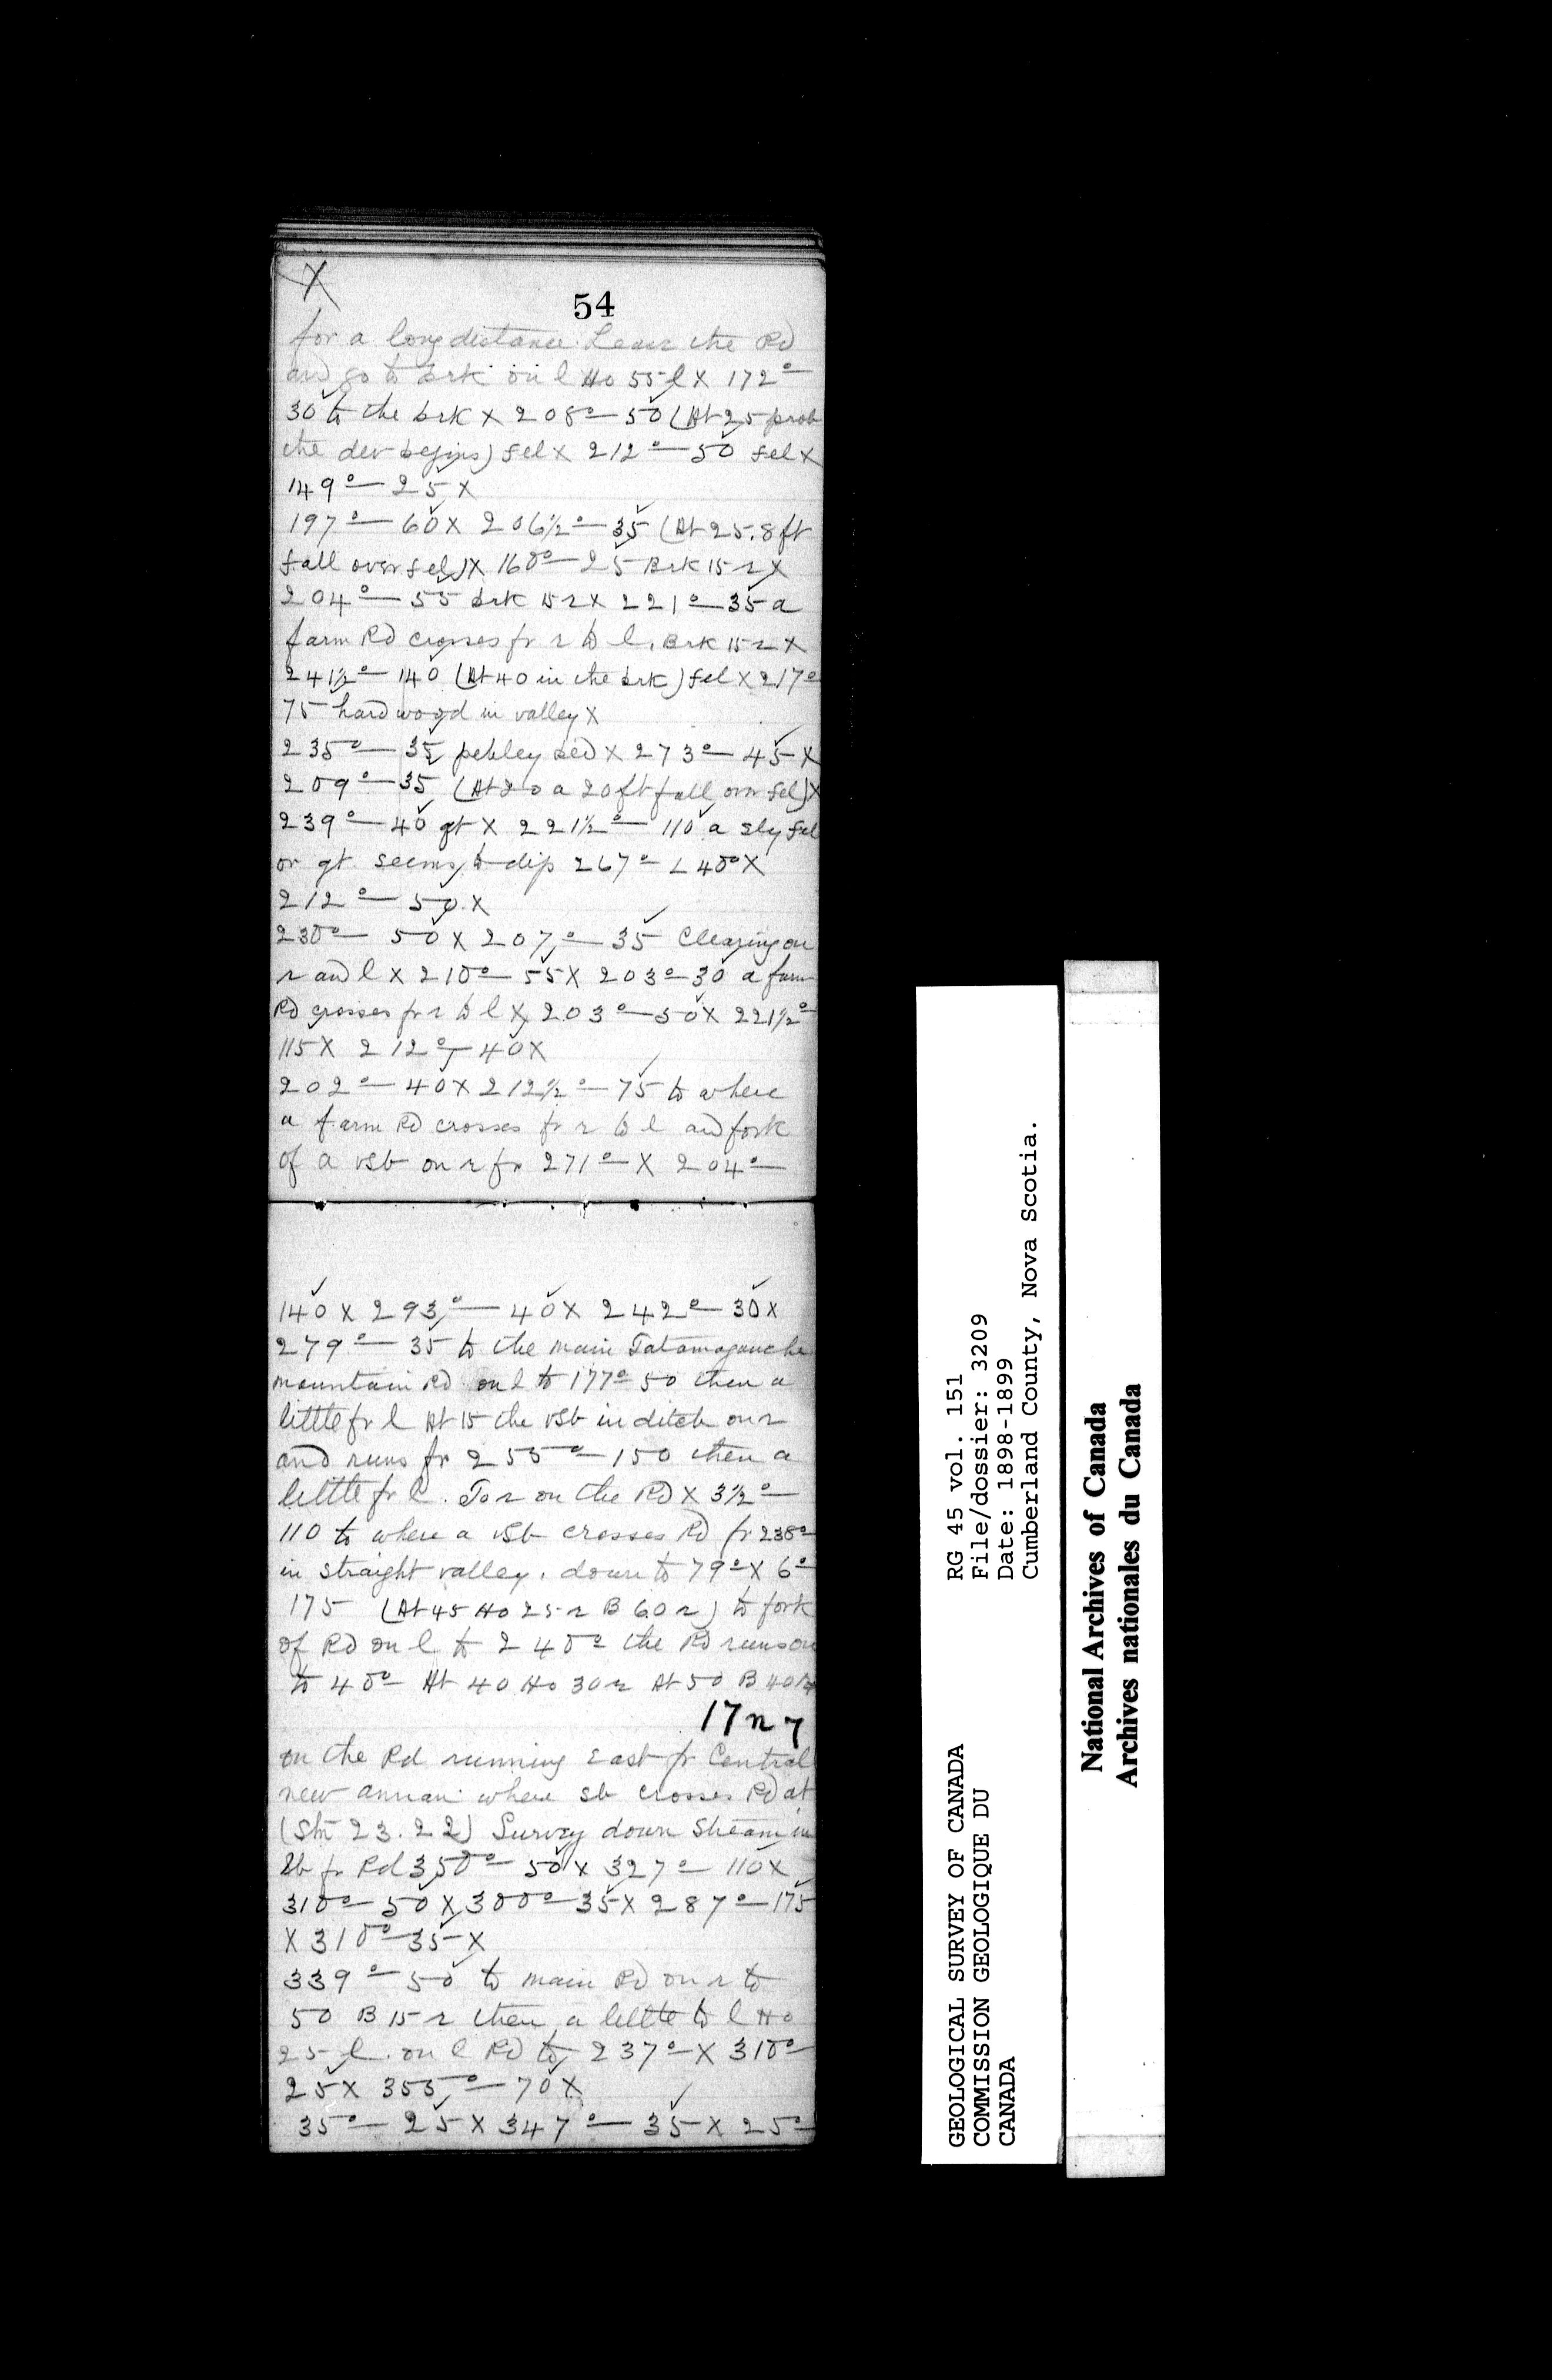 X
54
for a long distance. Leave the Rd
and go to brk on l Ho 55 l X 172°—
30 to the brk X 208°—50 (At 25 prob
the dev begins) fel X 212°—50 fel X
149°—25 X
197°—60 X 206½°—35 (At 25.8 ft
fall over fel) X 160°—25 Brk 15 r X
204°—55 brk 15 r X 221°—35 a
farm Rd crosses fr r to l. Brk 15 r X
241½°—140 (At 40 in the brk) fel X 217°
75 hardwood in valley X
235°—35 pebley bed X 273°—45 X
209°—35 (At 20 a 20 ft fall over fel) X
239°—40 gt X 221½°—110 a sly fel
or gt. seems to dip 267° ∠ 40° X
212°—50 X
230°—50 X 207°—35 Clearing on
r and l X 210°—55 X 203°—30 a farm
Rd crosses fr r to l X 203°—50 X 221½°
115 X 212°—40 X
202°—40 X 212½°—75 to where
a farm Rd crosses fr r to l and fork
of a vsb on r fr 271°— X 204°—
140 X 293°—40 X 242°—30 X
279°—35 to the main Tatamagouche
mountain Rd on l to 177° 50 then a
little fr l At 15 the vsb in ditch on r
and runs fr 255°—150 then a
little fr l. To r on the Rd X 3½°—
110 to where a vsb crosses Rd fr 238°
in straight valley. down to 79° X 6°
175 (At 45 Ho 25 r B 60 r) to fork
of Rd on l to 240° the Rd runs on
to 40° At 40 Ho 30 r At 50 B 40 r
17 n 7
on the Rd running East fr Central
new annan where sb crosses Rd at
(Stn 23.22) Survey down Stream in
Sb fr Rd 350°—50 X 327°—110 X
310°—50 X 300°—35 X 287°—175
X 310°—35 X
339°—50 to main Rd on r to
50 B 15 r then a little to l Ho
25 l. on l Rd to 237° X 310°
25 X 355°—70 X
35°—25 X 347°—35 X 25°
GEOLOGICAL SURVEY OF CANADA
COMMISSION GEOLOGIQUE DU
CANADA
RG 45 vol. 151
File/dossier: 3209
Date: 1898-1899
Cumberland County, Nova Scotia.
National Archives of Canada
Archives nationales du Canada